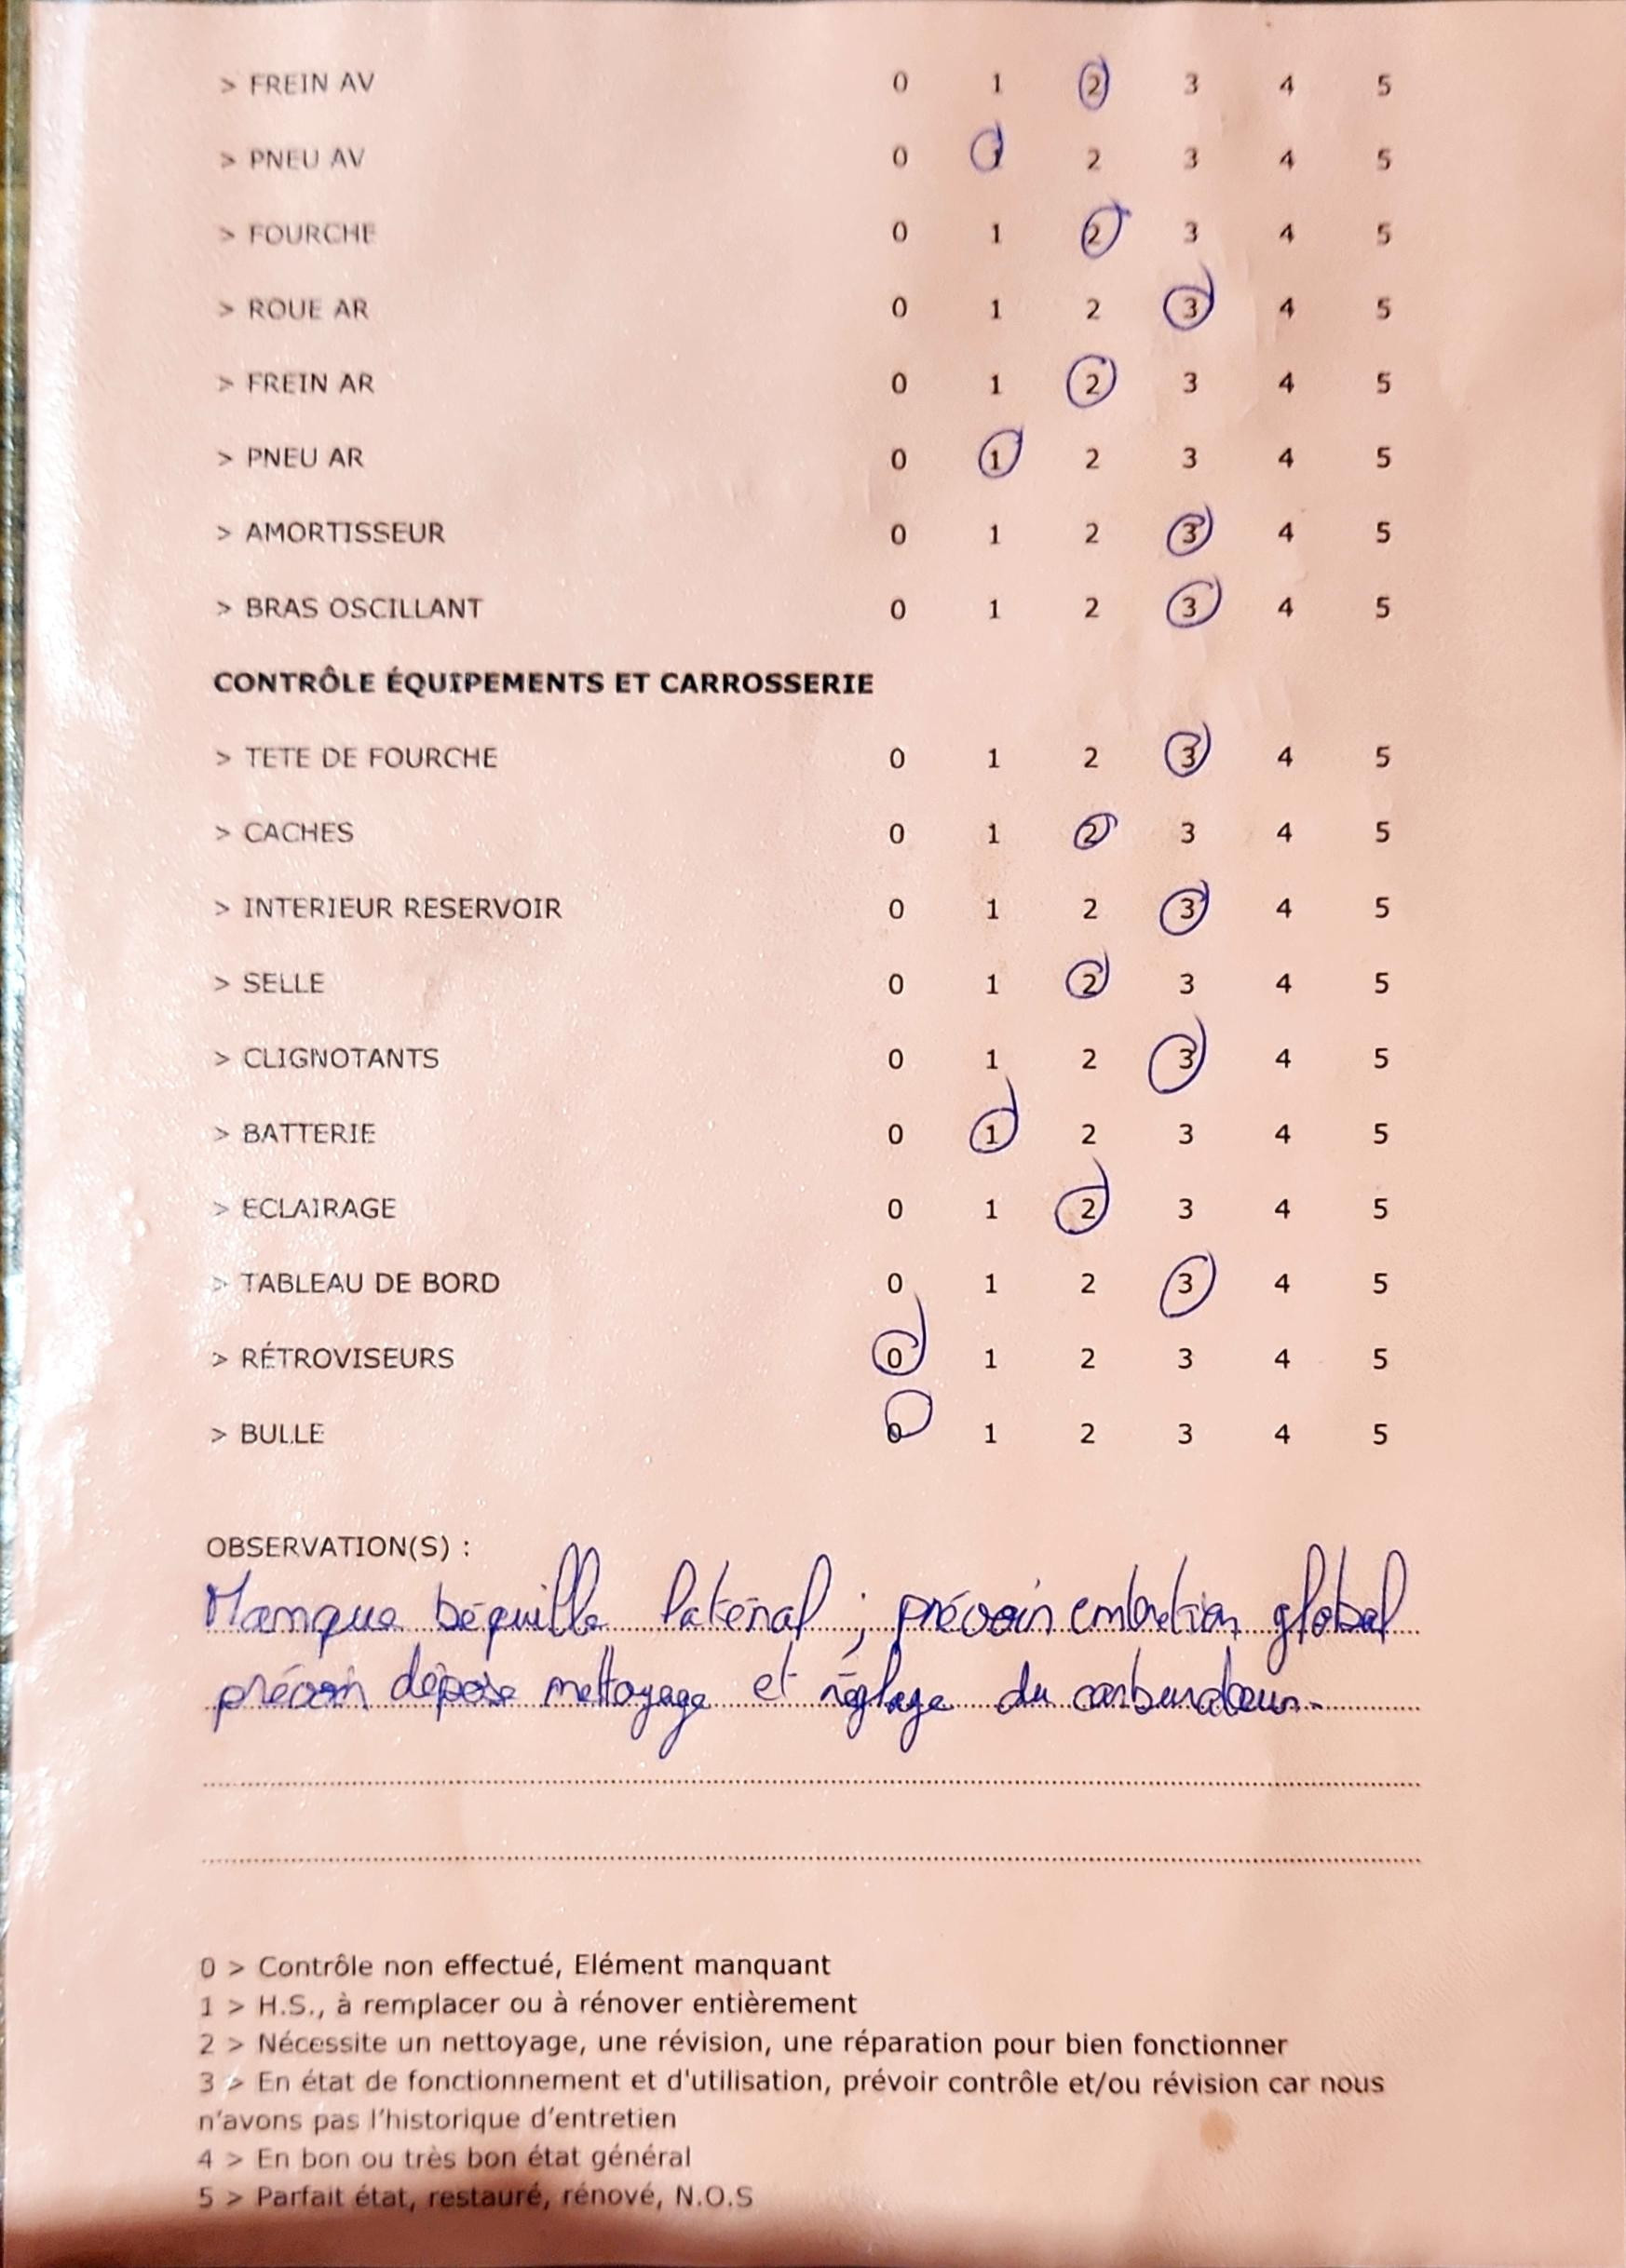 > FREIN AV 0 1 2 3 4 5
> PNEU AV 0 1 2 3 4 5
> FOURCHE 0 1 2 3 4 5
> ROUE AR 0 1 2 3 4 5
> FREIN AR 0 1 2 3 4 5
> PNEU AR 0 1 2 3 4 5
> AMORTISSEUR 0 1 2 3 4 5
> BRAS OSCILLANT 0 1 2 3 4 5
CONTRÔLE ÉQUIPEMENTS ET CARROSSERIE
> TETE DE FOURCHE 0 1 2 3 4 5
> CACHES 0 1 2 3 4 5
> INTERIEUR RESERVOIR 0 1 2 3 4 5
> SELLE 0 1 2 3 4 5
> CLIGNOTANTS 0 1 2 3 4 5
> BATTERIE 0 1 2 3 4 5
> ECLAIRAGE 0 1 2 3 4 5
> TABLEAU DE BORD 0 1 2 3 4 5
> RÉTROVISEURS 0 1 2 3 4 5
> BULLE 0 1 2 3 4 5
OBSERVATION(S) :
Manque béquille latéral ; prévoir entretien global
prévoir dépose nettoyage et réglage du carburateur.
0 > Contrôle non effectué, Elément manquant
1 > H.S., à remplacer ou à rénover entièrement
2 > Nécessite un nettoyage, une révision, une réparation pour bien fonctionner
3 > En état de fonctionnement et d'utilisation, prévoir contrôle et/ou révision car nous
n'avons pas l'historique d'entretien
4 > En bon ou très bon état général
5 > Parfait état, restauré, rénové, N.O.S